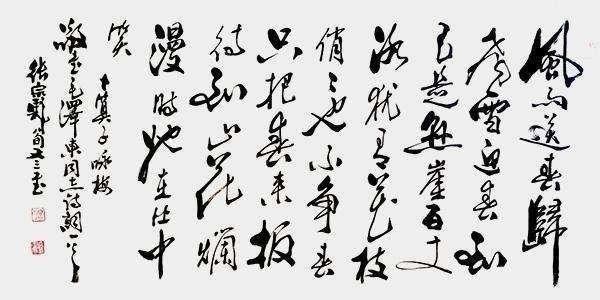 風雨送春歸
飛雪迎春到
已是懸崖百丈
冰犹有花枝
俏〻也不争春
只把春来报
待到山花爛
漫時她在丛中
笑
卜算子咏梅
敬書毛澤東同志詩詞一首
張